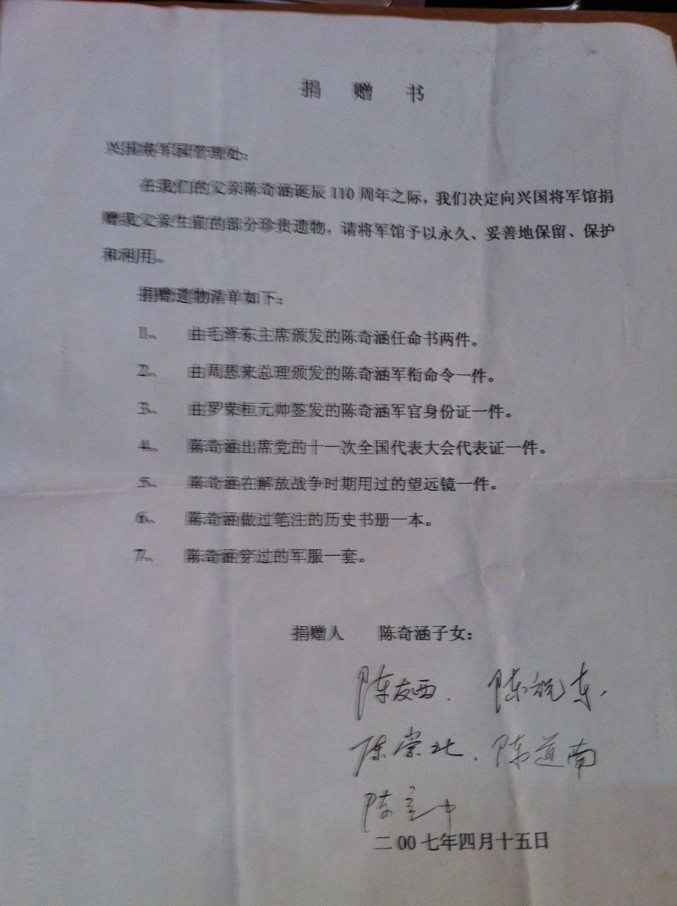 捐 赠 书
兴国将军园管理处：
在我们的父亲陈奇涵诞辰 110 周年之际，我们决定向兴国将军馆捐
赠我父亲生前的部分珍贵遗物，请将军馆予以永久、妥善地保留、保护
和利用。
捐赠遗物清单如下：
1、 由毛泽东主席颁发的陈奇涵任命书两件。
2、 由周恩来总理颁发的陈奇涵军衔命令一件。
3、 由罗荣桓元帅签发的陈奇涵军官身份证一件。
4、 陈奇涵出席党的十一次全国代表大会代表证一件。
5、 陈奇涵在解放战争时期用过的望远镜一件。
6、 陈奇涵做过笔注的历史书册一本。
7、 陈奇涵穿过的军服一套。
捐赠人 陈奇涵子女：
陈友西. 陈祝东,
陈崇北. 陈道南
陈立中
二00七年四月十五日